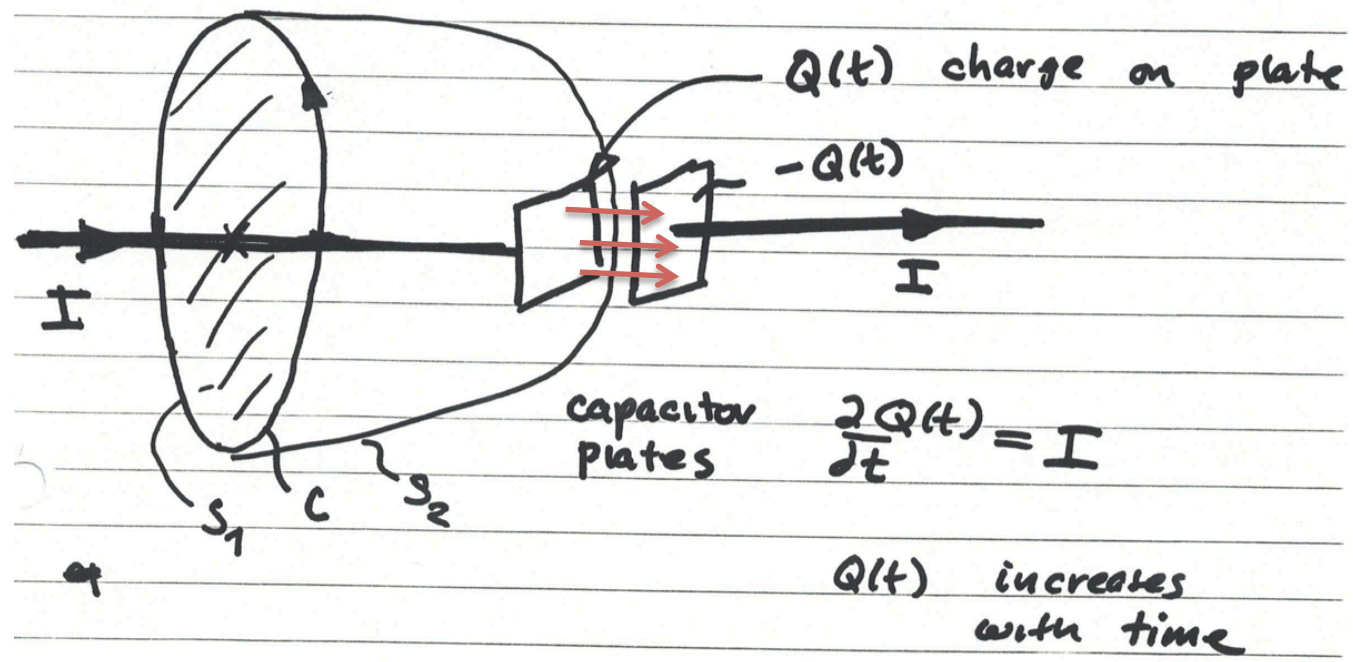 Q(t) charge on plate
-Q(t)
I
I
capacitor
plates
∂Q(t)/∂t = I
S₁
C
S₂
Q(t) increases
with time